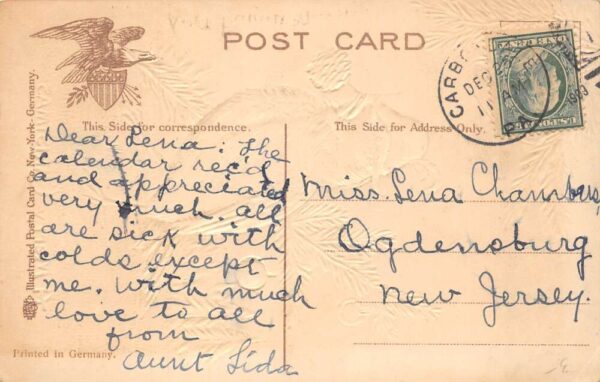 POST CARD
This Side for correspondence.
This Side for Address Only.
Dear Lena: The
calendar rec'd
and appreciated
very much. all
are sick with
colds except
me. with much
love to all
from
Aunt Lida
Miss. Lena Chambus,
Ogdensburg
New Jersey.
DEC
11 AM
PA.
Illustrated Postal Card Co. New-York - Germany.
Printed in Germany.